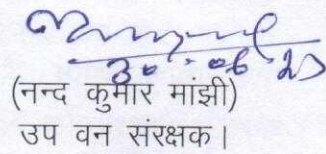 30.06.23
(नन्द कुमार मांझी)
उप वन संरक्षक।